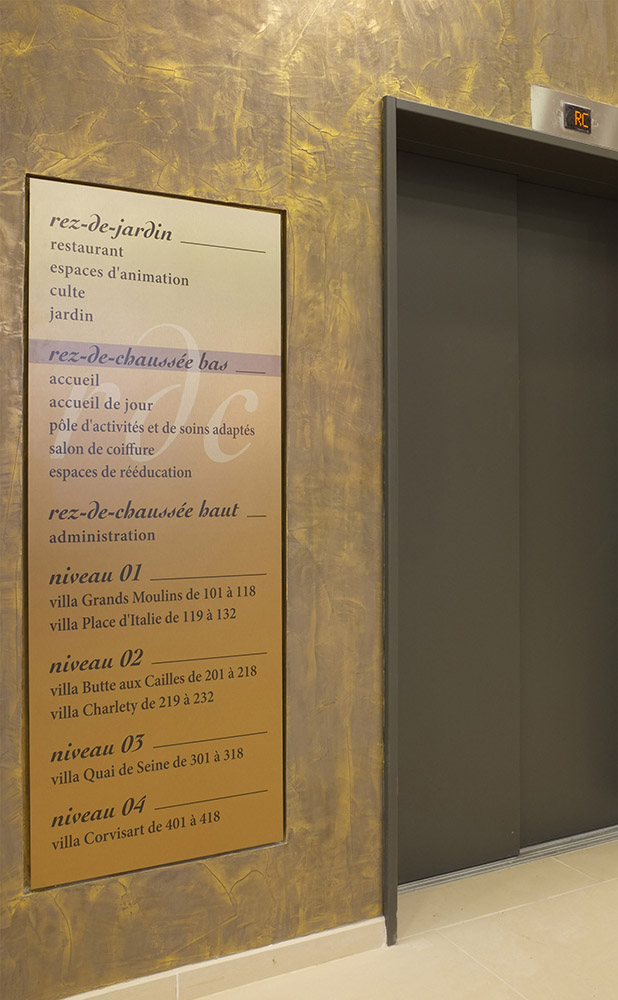 RC
rez-de-jardin
restaurant
espaces d'animation
culte
jardin
rdc
rez-de-chaussée bas
accueil
accueil de jour
pôle d'activités et de soins adaptés
salon de coiffure
espaces de rééducation
rez-de-chaussée haut
administration
niveau 01
villa Grands Moulins de 101 à 118
villa Place d'Italie de 119 à 132
niveau 02
villa Butte aux Cailles de 201 à 218
villa Charlety de 219 à 232
niveau 03
villa Quai de Seine de 301 à 318
niveau 04
villa Corvisart de 401 à 418